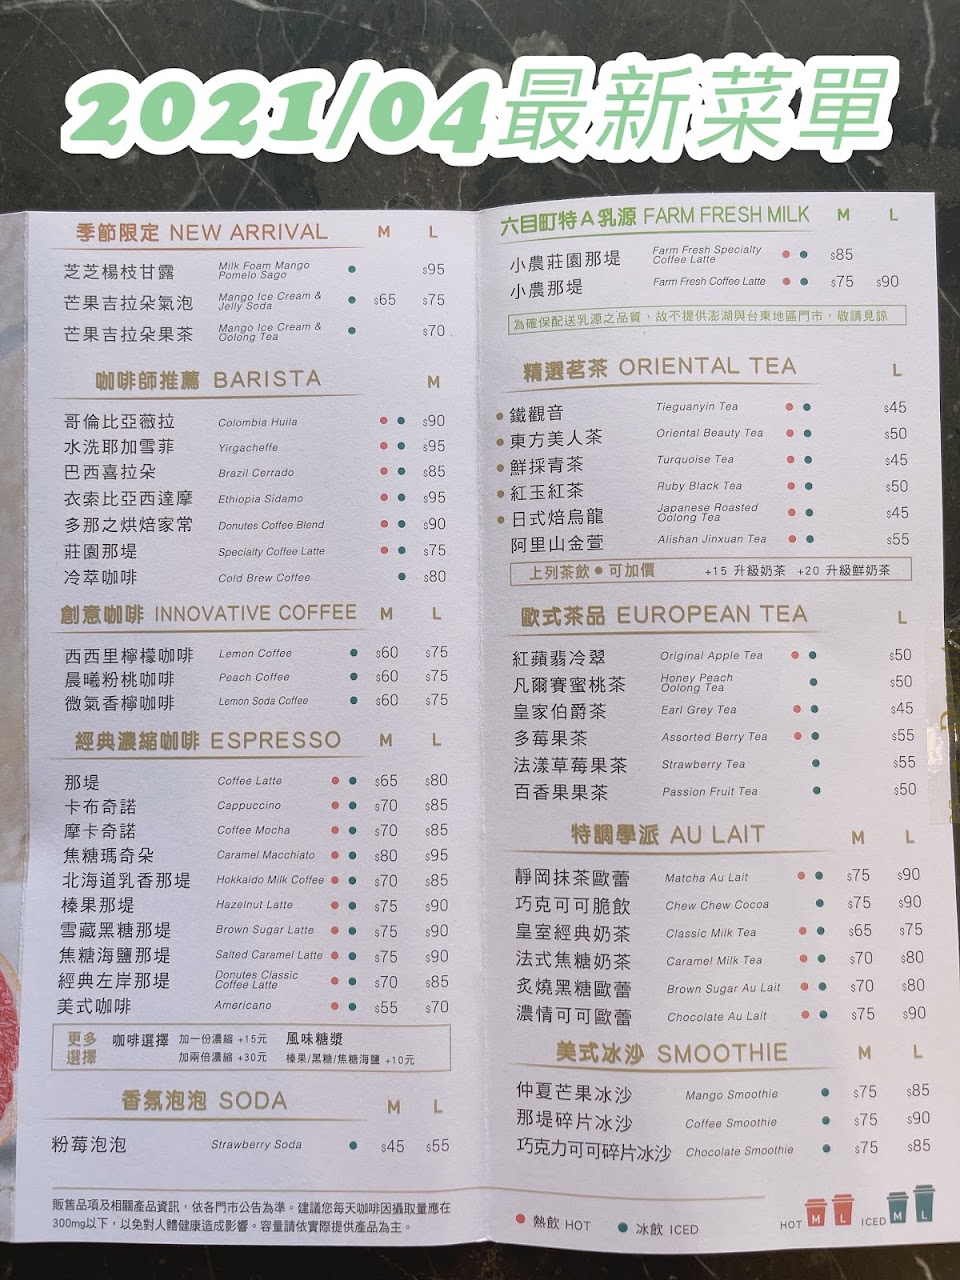 2021/04最新菜單
季節限定 NEW ARRIVAL M L
芝芝楊枝甘露 Milk Foam Mango Pomelo Sago $95
芒果吉拉朵氣泡 Mango Ice Cream & Jelly Soda $65 $75
芒果吉拉朵果茶 Mango Ice Cream & Oolong Tea $70
咖啡師推薦 BARISTA M
哥倫比亞薇拉 Colombia Huila $90
水洗耶加雪菲 Yirgacheffe $95
巴西喜拉朵 Brazil Cerrado $85
衣索比亞西達摩 Ethiopia Sidamo $95
多那之烘焙家常 Donutes Coffee Blend $90
莊園那堤 Specialty Coffee Latte $75
冷萃咖啡 Cold Brew Coffee $80
創意咖啡 INNOVATIVE COFFEE M L
西西里檸檬咖啡 Lemon Coffee $60 $75
晨曦粉桃咖啡 Peach Coffee $60 $75
微氣香檸咖啡 Lemon Soda Coffee $60 $75
經典濃縮咖啡 ESPRESSO M L
那堤 Coffee Latte $65 $80
卡布奇諾 Cappuccino $70 $85
摩卡奇諾 Coffee Mocha $70 $85
焦糖瑪奇朵 Caramel Macchiato $80 $95
北海道乳香那堤 Hokkaido Milk Coffee $70 $85
榛果那堤 Hazelnut Latte $75 $90
雪藏黑糖那堤 Brown Sugar Latte $75 $90
焦糖海鹽那堤 Salted Caramel Latte $75 $90
經典左岸那堤 Donutes Classic Coffee Latte $70 $85
美式咖啡 Americano $55 $70
更多選擇 咖啡選擇 加一份濃縮 +15元 風味糖漿
加兩倍濃縮 +30元 榛果/黑糖/焦糖海鹽 +10元
香氛泡泡 SODA M L
粉莓泡泡 Strawberry Soda $45 $55
販售品項及相關產品資訊，依各門市公告為準。建議您每天咖啡因攝取量應在
300mg以下，以免對人體健康造成影響。容量請依實際提供產品為主。
六目町特A乳源 FARM FRESH MILK M L
小農莊園那堤 Farm Fresh Specialty Coffee Latte $85
小農那堤 Farm Fresh Coffee Latte $75 $90
為確保配送乳源之品質，故不提供澎湖與台東地區門市，敬請見諒
精選茗茶 ORIENTAL TEA L
鐵觀音 Tieguanyin Tea $45
東方美人茶 Oriental Beauty Tea $50
鮮採青茶 Turquoise Tea $45
紅玉紅茶 Ruby Black Tea $50
日式焙烏龍 Japanese Roasted Oolong Tea $45
阿里山金萱 Alishan Jinxuan Tea $55
上列茶飲 ● 可加價 +15 升級奶茶 +20 升級鮮奶茶
歐式茶品 EUROPEAN TEA L
紅蘋翡冷翠 Original Apple Tea $50
凡爾賽蜜桃茶 Honey Peach Oolong Tea $50
皇家伯爵茶 Earl Grey Tea $45
多莓果茶 Assorted Berry Tea $55
法漾草莓果茶 Strawberry Tea $55
百香果果茶 Passion Fruit Tea $50
特調學派 AU LAIT M L
靜岡抹茶歐蕾 Matcha Au Lait $75 $90
巧克可可脆飲 Chew Chew Cocoa $75 $90
皇室經典奶茶 Classic Milk Tea $65 $75
法式焦糖奶茶 Caramel Milk Tea $70 $80
炙燒黑糖歐蕾 Brown Sugar Au Lait $70 $80
濃情可可歐蕾 Chocolate Au Lait $75 $90
美式冰沙 SMOOTHIE M L
仲夏芒果冰沙 Mango Smoothie $75 $85
那堤碎片冰沙 Coffee Smoothie $75 $90
巧克力可可碎片冰沙 Chocolate Smoothie $75 $85
熱飲 HOT 冰飲 ICED HOT M L ICED M L